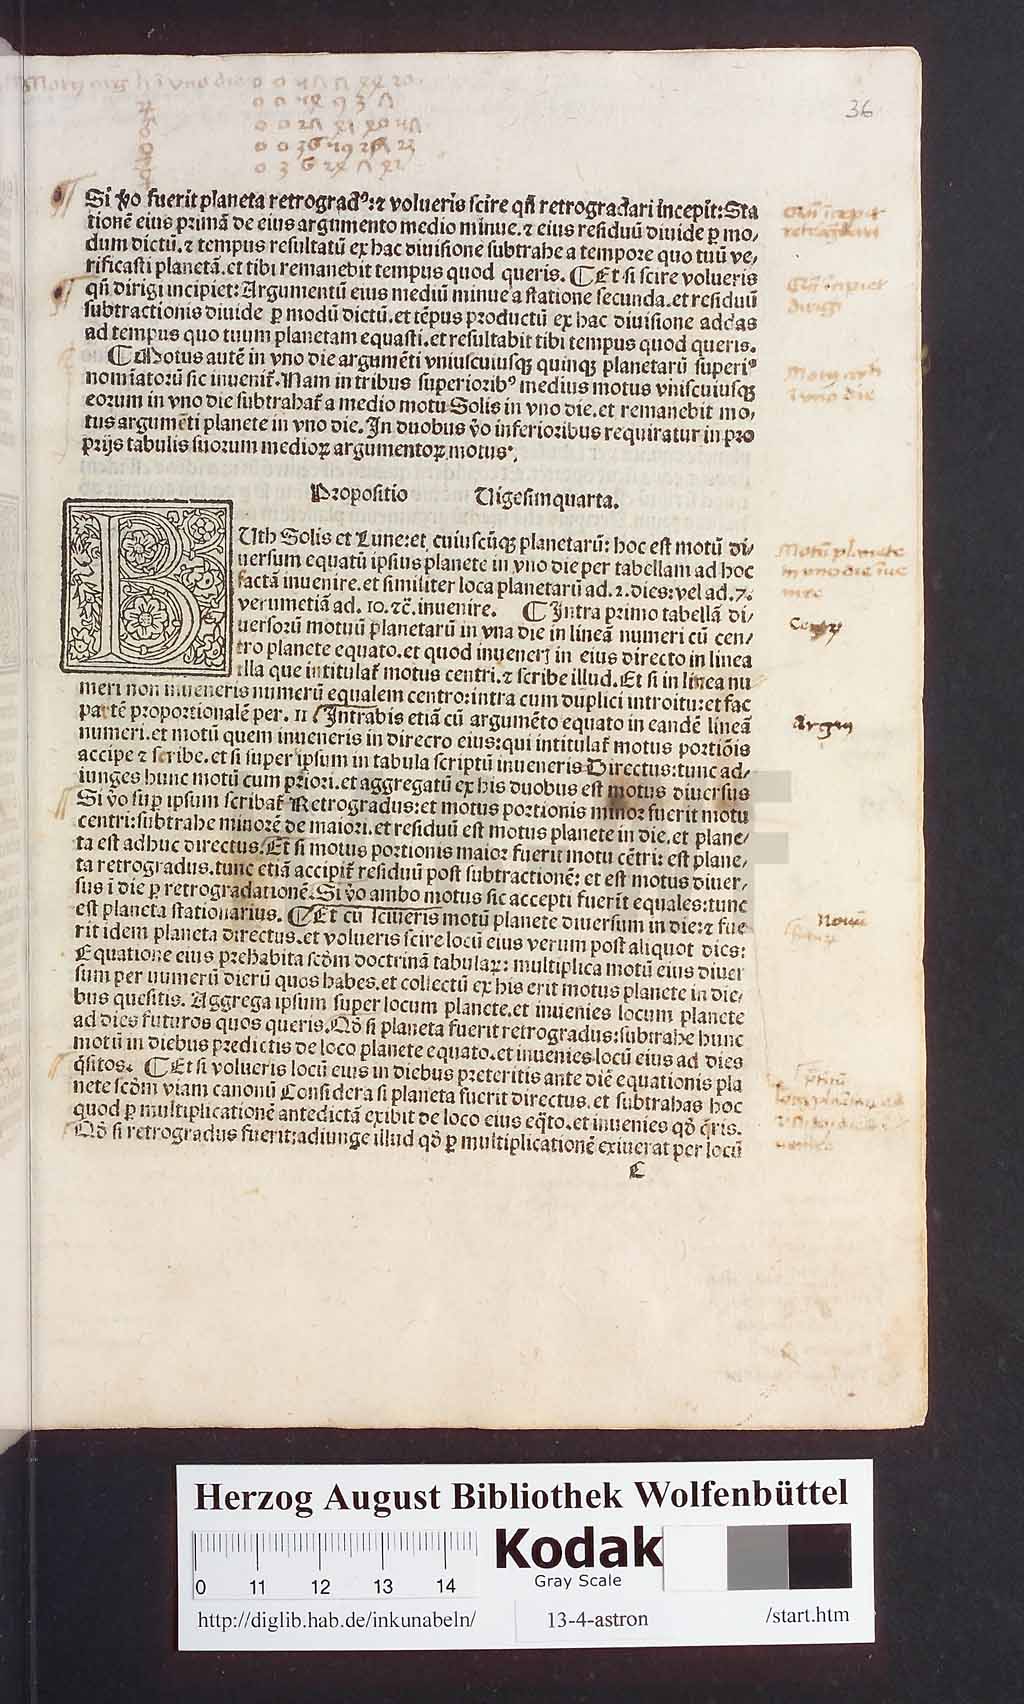 36
Si ỽo fuerit planeta retrogradꝰ: ⁊ volueris scire qñ retrogradari incepit: Sta
tionẽ eius primã de eius argumento medio minue. ⁊ eius residuũ diuide ꝑ mo,
dum dictũ. ⁊ tempus resultatũ ex hac diuisione subtrahe a tempore quo tuũ ve,
rificasti planetã. et tibi remanebit tempus quod queris. ¶ Et si scire volueris
qñ dirigi incipiet: Argumentũ eius mediũ minue a statione secunda. et residuũ
subtractionis diuide ꝑ modũ dictũ. et tẽpus productũ ex hac diuisione addas
ad tempus quo tuum planetam equasti. et resultabit tibi tempus quod queris.
¶ Motus autẽ in vno die argumẽti vniuscuiusqꝫ quinqꝫ planetarũ superiꝰ
nomĩatorũ sic inuenit̃. Nam in tribus superioribꝰ medius motus vniscuiusqꝫ
eorum in vno die subtrahat̃ a medio motu Solis in vno die. et remanebit mo,
tus argumẽti planete in vno die. In duobus ỽo inferioribus requiratur in pro
prijs tabulis suorum medioꝝ argumentoꝝ motus.
Propositio Uigesimquarta.
BUth Solis et Lune: et cuiuscũqꝫ planetarũ: hoc est motũ di,
uersum equatũ ipsius planete in vno die per tabellam ad hoc
factã inuenire. et similiter loca planetarũ ad .2. dies: vel ad .7.
verumetiã ad .10. ⁊c̃. inuenire. ¶ Intra primo tabellã di,
uersorũ motuũ planetarũ in vna die in lineã numeri cũ cen,
tro planete equato. et quod inueneri in eius directo in linea
illa que intitulat̃ motus centri. ⁊ scribe illud. Et si in linea nu
meri non inueneris numerũ equalem centro: intra cum duplici introitu: et fac
partẽ proportionalẽ per .11 Intrabis etiã cũ argumẽto equato in eandẽ lineã
numeri. et motũ quem inueneris in direcro eius: qui intitulat̃ motus portiõis
accipe ⁊ scribe. et si super ipsum in tabula scriptũ inueneris Directus: tunc ad,
iunges hunc motũ cum priori. et aggregatũ ex his duobus est motus diuersus
Si ỽo suꝑ ipsum scribat̃ Retrogradus: et motus portionis minor fuerit motu
centri: subtrahe minorẽ de maiori. et residuũ est motus planete in die. et plane,
ta est adhuc directus. Et si motus portionis maior fuerit motu cẽtri: est plane,
ta retrogradus. tunc etiã accipit̃ residuũ post subtractionẽ: et est motus diuer,
sus ĩ die ꝑ retrogradationẽ. Si ỽo ambo motus sic accepti fuerĩt equales: tunc
est planeta stationarius. ¶ Et cũ sciueris motũ planete diuersum in die: ⁊ fue
rit idem planeta directus. et volueris scire locũ eius verum post aliquot dies:
Equatione eius prehabita scðm doctrinã tabulaꝝ: multiplica motũ eius diuer
sum per uumerũ dierũ quos habes. et collectũ ex his erit motus planete in die,
bus quesitis. Aggrega ipsum super locum planete. et inuenies locum planete
ad dies futuros quos queris. Qð si planeta fuerit retrogradus: subtrahe hunc
motũ in diebus predictis de loco planete equato. et inuenies locũ eius ad dies
q̃sitos. ¶ Et si volueris locũ eius in diebus preteritis ante diẽ equationis pla
nete scðm viam canonũ Considera si planeta fuerit directus. et subtrahas hoc
quod ꝑ multiplicationẽ antedictã exibit de loco eius eq̃to. et inuenies qð q̃ris.
Qð si retrogradus fuerit: adiunge illud qð ꝑ multiplicationẽ exiuerat per locũ
C
Motũ planete
in vno die ĩue
nire
Argum
Herzog August Bibliothek Wolfenbüttel
0 11 12 13 14
Kodak
Gray Scale
http://diglib.hab.de/inkunabeln/ 13-4-astron /start.htm